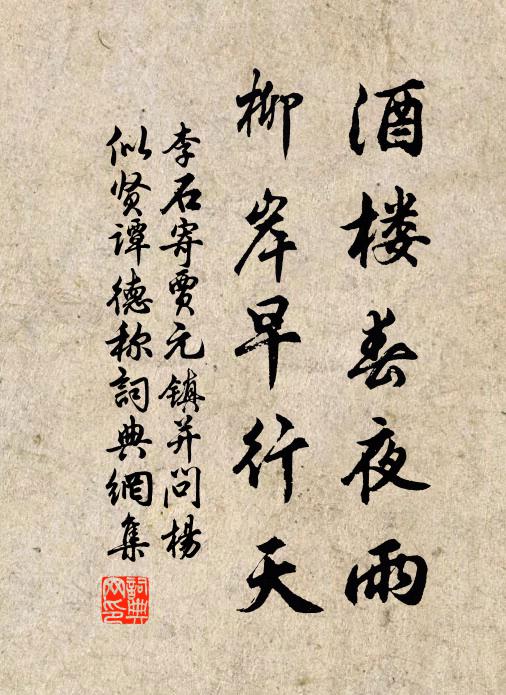 酒楼春夜雨
柳岸早行天
李石寄贾元镇并问楊
似贤谭德称詞典網集
詞典